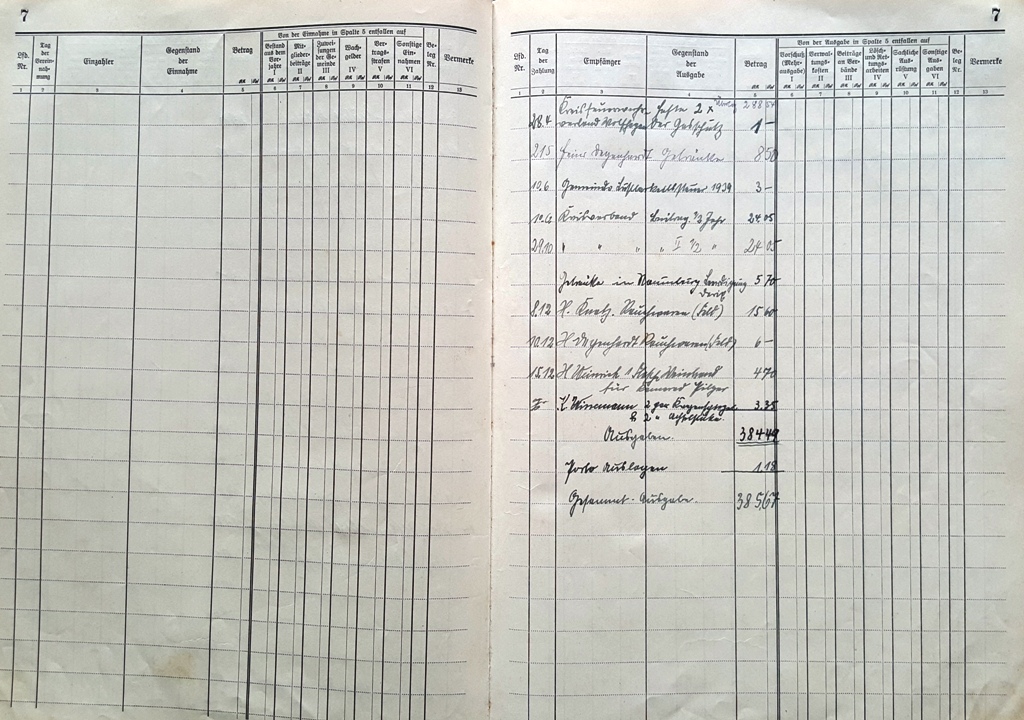 7
Von der Einnahme in Spalte 5 entfallen auf
Lfd. Nr.
Tag der Vereinnahmung
Einzahler
Gegenstand der Einnahme
Betrag
Bestand aus dem Vorjahre I
Mitgliederbeiträge II
Zuweisungen der Gemeinde III
Wachgelder IV
Vertragsstrafen V
Sonstige Einnahmen VI
Beleg Nr.
Vermerke
1 2 3 4 5 6 7 8 9 10 11 12 13
7
Von der Ausgabe in Spalte 5 entfallen auf
Lfd. Nr.
Tag der Zahlung
Empfänger
Gegenstand der Ausgabe
Betrag
Vorschuß (Mehrausgabe) I
Verwaltungskosten II
Beiträge an Verbände III
Lösch- und Rettungsarbeiten IV
Sachliche Ausrüstung V
Sonstige Ausgaben VI
Beleg Nr.
Vermerke
1 2 3 4 5 6 7 8 9 10 11 12 13
Übertrag 288 54
28.4 Kreisfeuerwehrverband Wolfhagen Hefte 2 x Der Gasschutz 1 –
21.5 Degenhardt Getränke 8 50
10.6 Gemeinde 1939 3 –
10.6 Kreisverband Beitrag 1/2 Jahr 24 05
29.10 " " " " II 1/2 " 24 05
Getränke in Naumburg 5 70
8.12 H. Rauchwaren (Feld) 15 60
10.12 H Degenhardt Rauchwaren (Feld) 6 –
15.12 H Heinrich Weinbrand 4 70
für Kamerad Hilger
K 2 3.35
2 "
Ausgaben. 384 49
Porto Auslagen 1.18
Gesammt-Ausgabe. 385,67